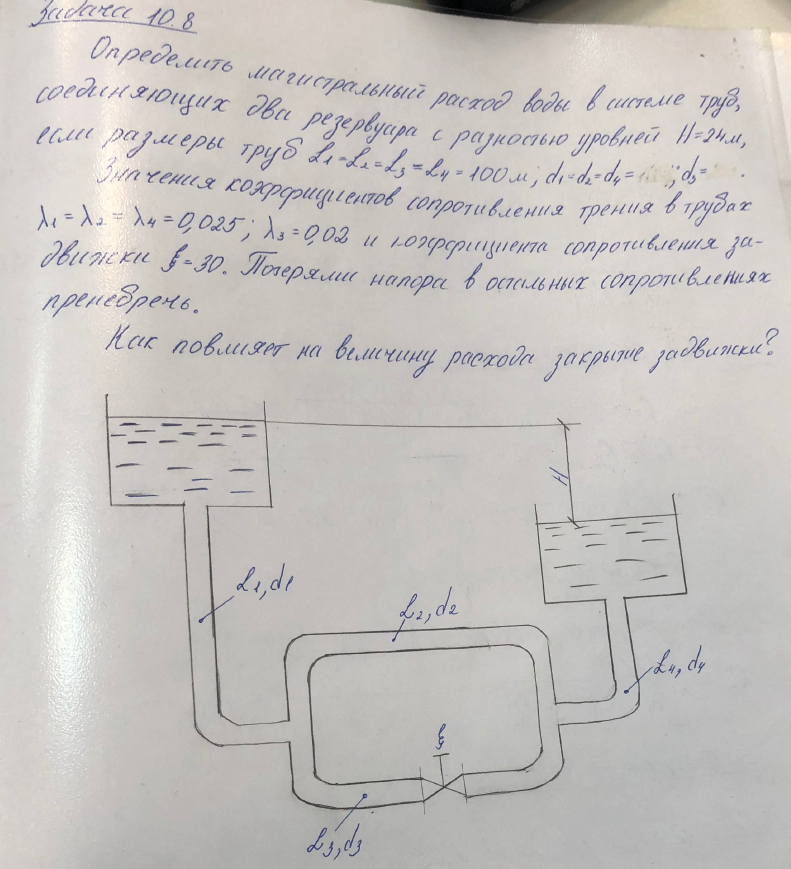 Задача 10.8
Определить магистральный расход воды в системе труб,
соединяющих два резервуара с разностью уровней H=24м,
если размеры труб L1=L2=L3=L4=100м; d1=d2=d4= ; d3= .
Значения коэффициентов сопротивления трения в трубах
λ1=λ2=λ4=0,025; λ3=0,02 и коэффициента сопротивления за-
движки ξ=30. Потерями напора в остальных сопротивлениях
пренебречь.
Как повлияет на величину расхода закрытие задвижки?
H
L1, d1
L2, d2
L4, d4
ξ
L3, d3